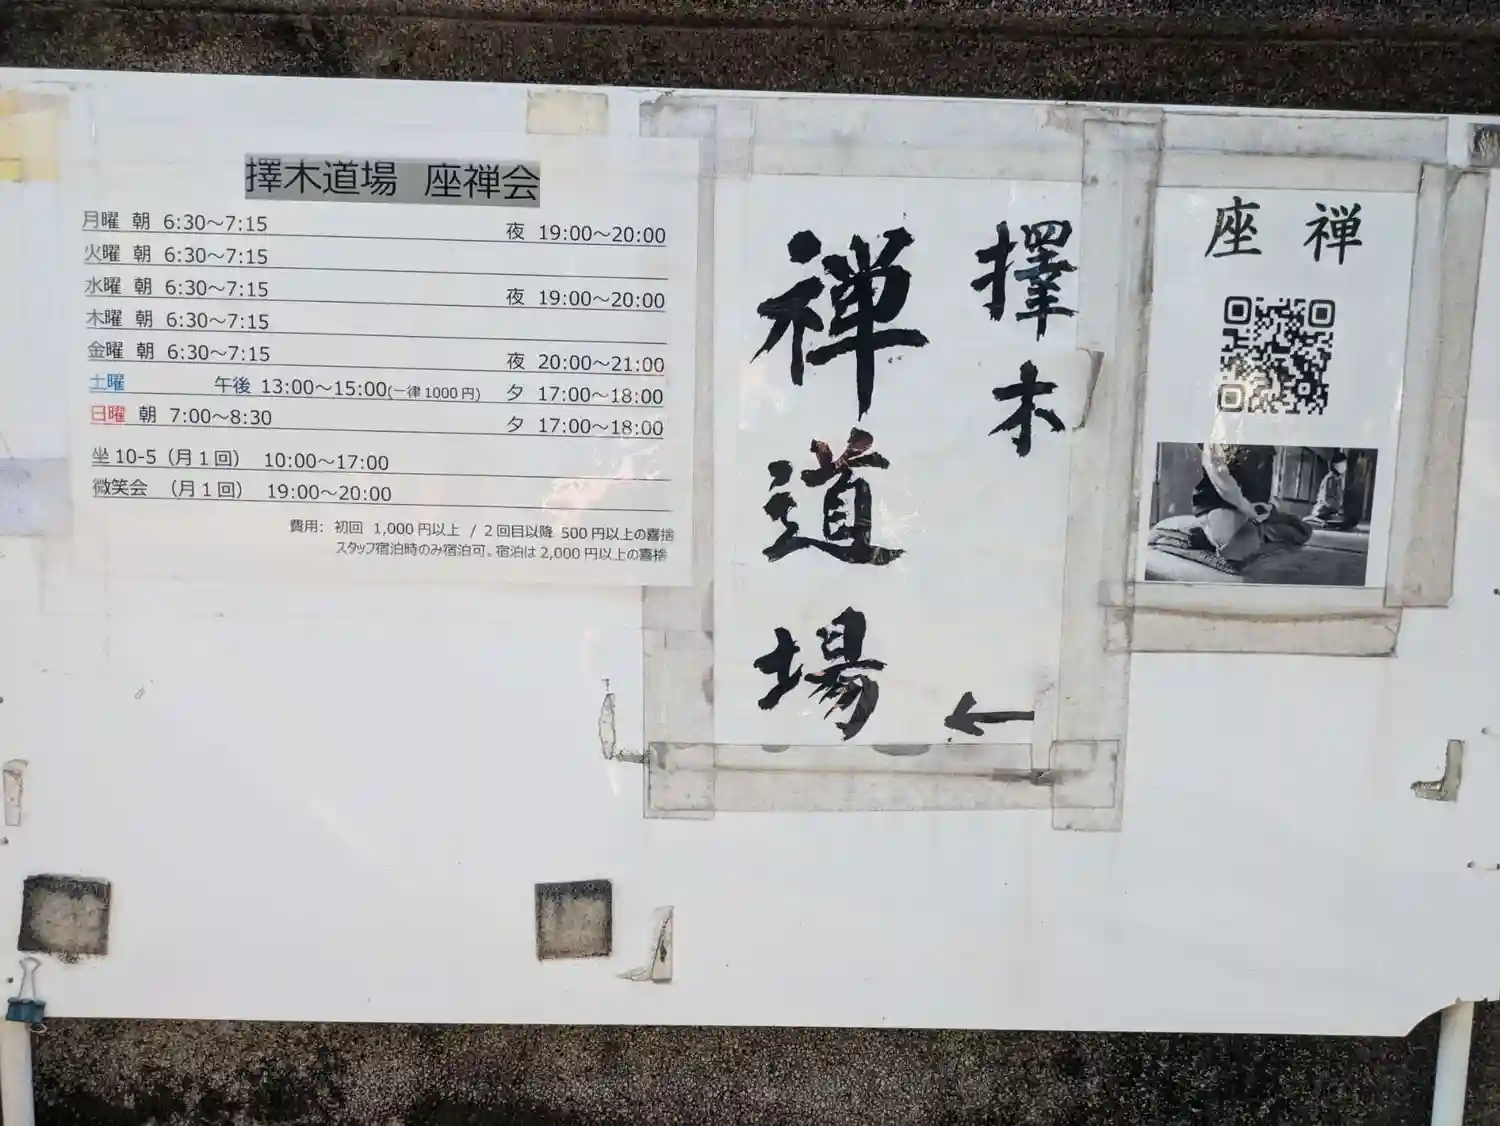 擇木道場 座禅会
月曜 朝 6:30～7:15 夜 19:00～20:00
火曜 朝 6:30～7:15
水曜 朝 6:30～7:15 夜 19:00～20:00
木曜 朝 6:30～7:15
金曜 朝 6:30～7:15 夜 20:00～21:00
土曜 午後 13:00～15:00(一律1000円) 夕 17:00～18:00
日曜 朝 7:00～8:30 夕 17:00～18:00
坐10-5（月１回） 10:00～17:00
微笑会 （月１回） 19:00～20:00
費用： 初回 1,000円以上 / ２回目以降 500円以上の喜捨
スタッフ宿泊時のみ宿泊可。宿泊は2,000円以上の喜捨
擇木
禅道場
←
座 禅